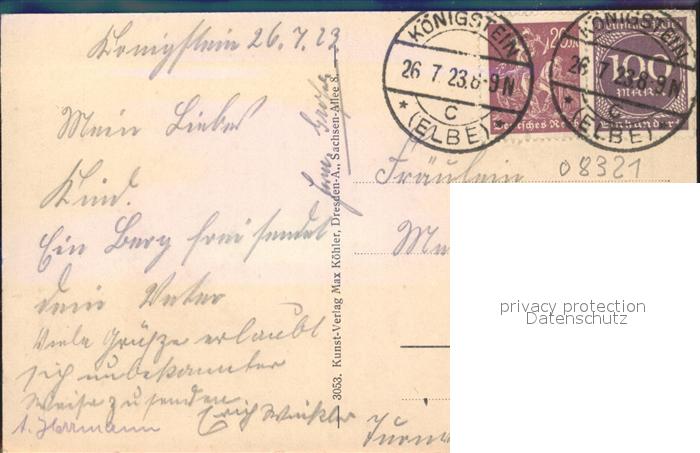 Königstein 26.7.23
Mein Liebes
Kind.
Ein Berg frei sendet
dein Vater
Viele Grüße erlaubt
sich unbekannter
Weise zu senden
Erich Winkler
A. Herrmann
3053. Kunst-Verlag Max Köhler, Dresden-A., Sachsen-Allee 8.
KÖNIGSTEIN
26 7.23.8-9N
* C *
(ELBE)
Deutsches Reich
KÖNIGSTEIN
26 7.23.8-9N
* C
(ELBE)
100
MARK
Einhundert
08321
Fräulein
privacy protection
Datenschutz